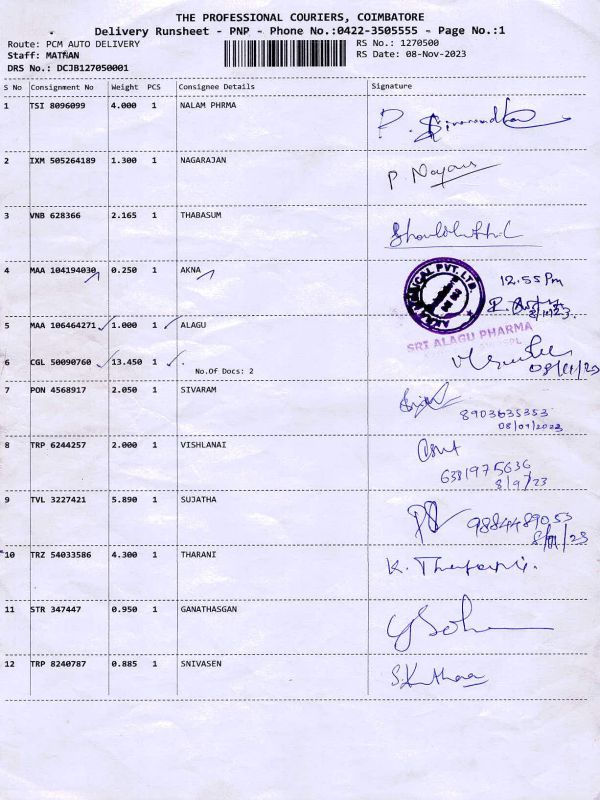 THE PROFESSIONAL COURIERS, COIMBATORE
Delivery Runsheet - PNP - Phone No.:0422-3505555 - Page No.:1
Route: PCM AUTO DELIVERY RS No.: 1270500
Staff: MATHAN RS Date: 08-Nov-2023
DRS No.: DCJB127050001
S No Consignment No Weight PCS Consignee Details Signature
1 TSI 8096099 4.000 1 NALAM PHRMA
2 IXM 505264189 1.300 1 NAGARAJAN P. Nayan
3 VNB 628366 2.165 1 THABASUM
4 MAA 104194030 0.250 1 AKNA 12.55 Pm
5 MAA 106464271 1.000 1 ALAGU SRI ALAGU PHARMA
6 CGL 50090760 13.450 1 . 08/11/23
No.Of Docs: 2
7 PON 4568917 2.050 1 SIVARAM 8903635353
08/01/2023
8 TRP 6244257 2.000 1 VISHLANAI
6381975636
8/9/23
9 TVL 3227421 5.890 1 SUJATHA 9884489053
8/11/23
10 TRZ 54033586 4.300 1 THARANI
11 STR 347447 0.950 1 GANATHASGAN
12 TRP 8240787 0.885 1 SNIVASEN